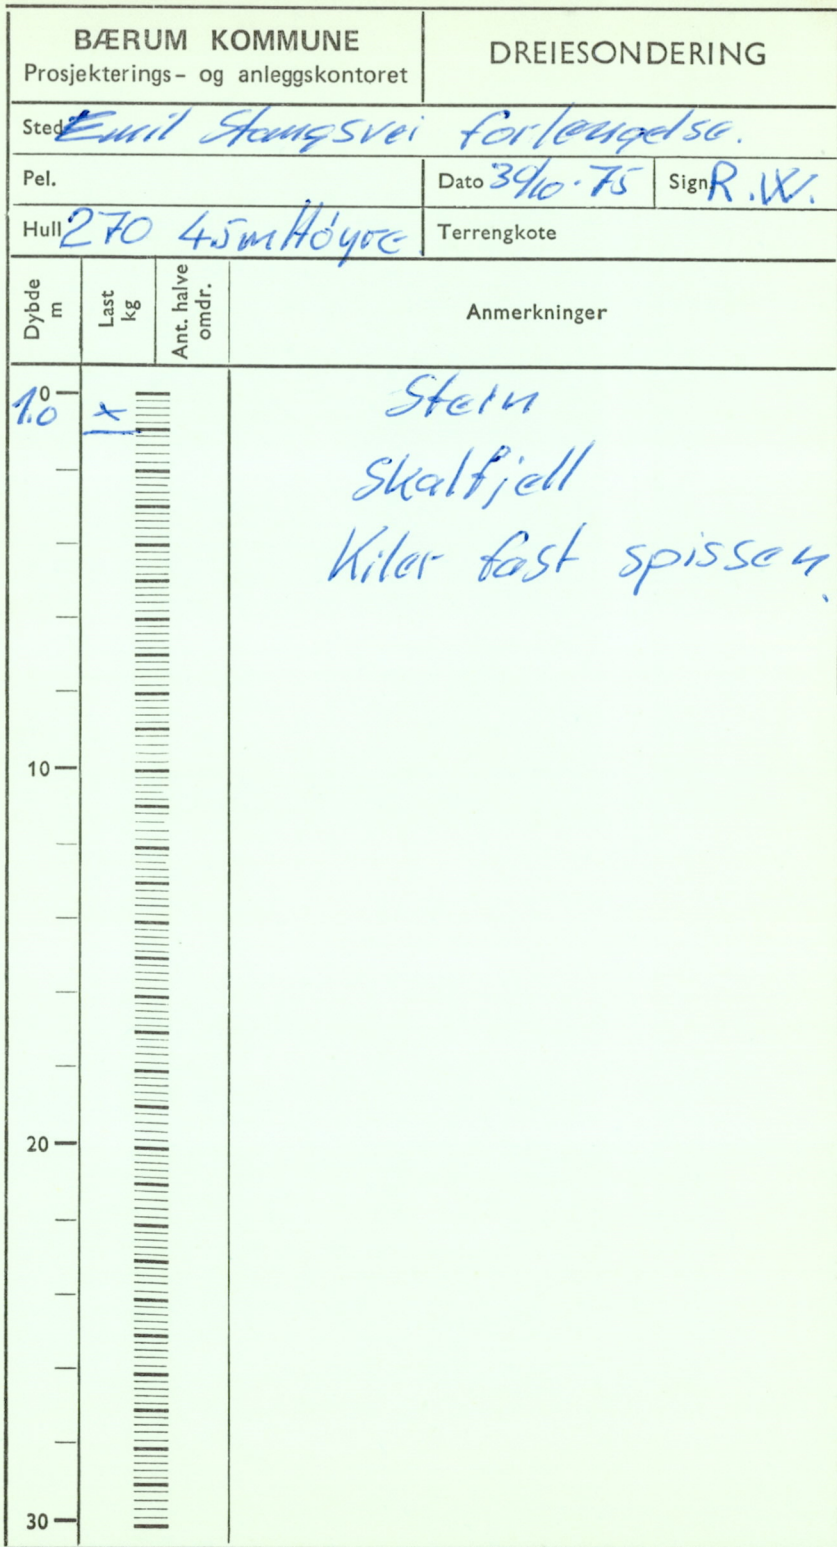 BÆRUM KOMMUNE
Prosjekterings- og anleggskontoret
DREIESONDERING
Sted Emil Stangsvei forlengelse.
Pel.
Dato 30/10-75 Sign. R.W.
Hull 270 4.5m Høyre
Terrengkote
Dybde m
Last kg
Ant. halve omdr.
Anmerkninger
0
1.0 x
Stein
Skalfjell
Kiler fast spissen.
10
20
30